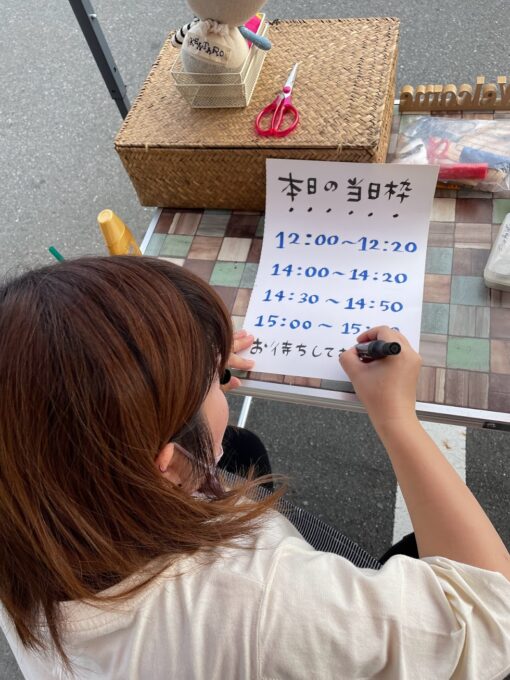 KENTARO
welcome
本日の当日枠
12:00～12:20
14:00～14:20
14:30～14:50
15:00～15:
お待ちして